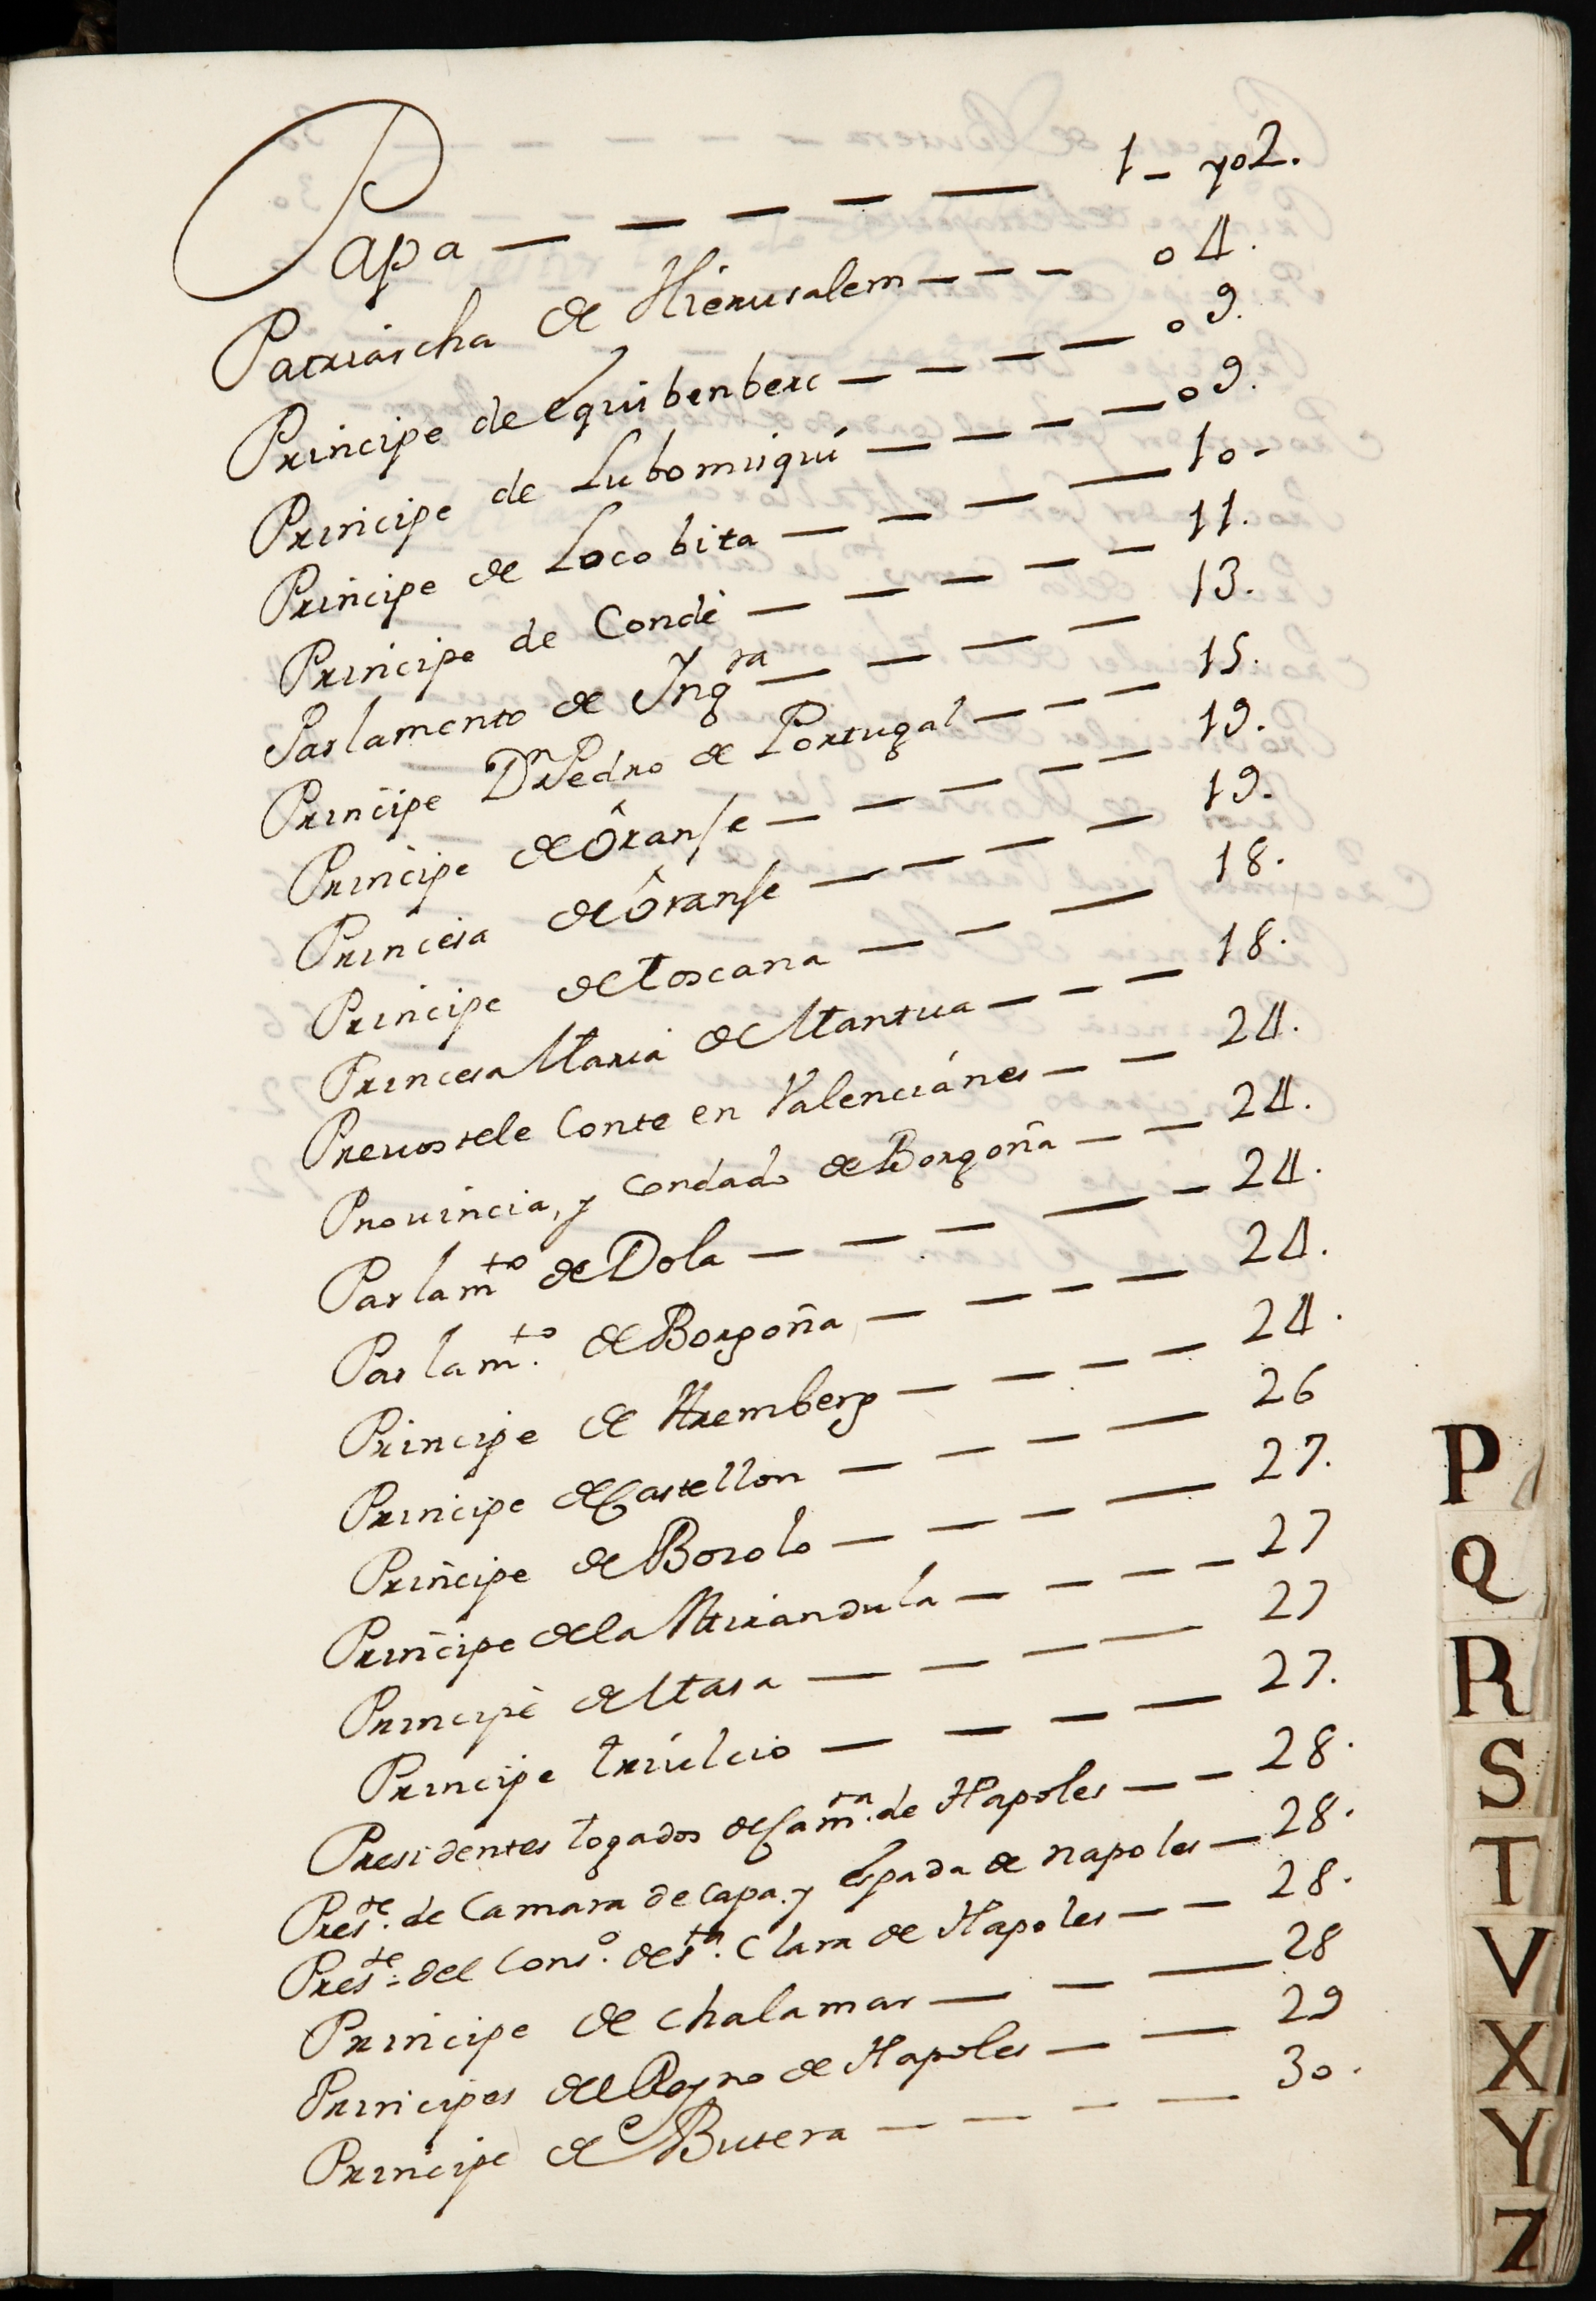 Papa — — — — — 1 - y 02.
Patriarcha de Hierusalem — — — 04.
Principe de Equibenberc — — — 09.
Principe de Lubomiriqui — — — — 09.
Principe de Locobita — — — — 10-
Principe de Condé — — — — — 11.
Parlamento de Ingra — — — — 13.
Principe Dn Pedro de Portugal — — — 15.
Principe de Ôranse — — — — — 19.
Princesa de Ôranse — — — — 19.
Principe de Toscana — — — 18.
Princesa Maria de Mantua — — — 18.
Prevostele Conte en Valenciánes — — 24.
Provincia, y Condado de Borgoña — — 24.
Parlamto de Dola — — — — — 24.
Parlamto. de Borgoña — — — — 24.
Principe de Aremberg — — — — 24.
Principe de Castellon — — — — 26
Principe de Bozolo — — — — 27.
Principe de la Mirandula — — — — 27
Principe de Masa — — — — 27
Principe Triulcio — — — — 27.
Presidentes togados de Camra. de Napoles — — 28.
Preste. de Camara de Capa. y Espada de napoles — 28.
Preste. del Conso. de Sta. Clara de Napoles — — 28.
Principe de chalamar — — — 28
Principes del Reyno de Napoles — — 29
Principe de Butera — — — — 30.
P
Q
R
S
T
V
X
Y
Z